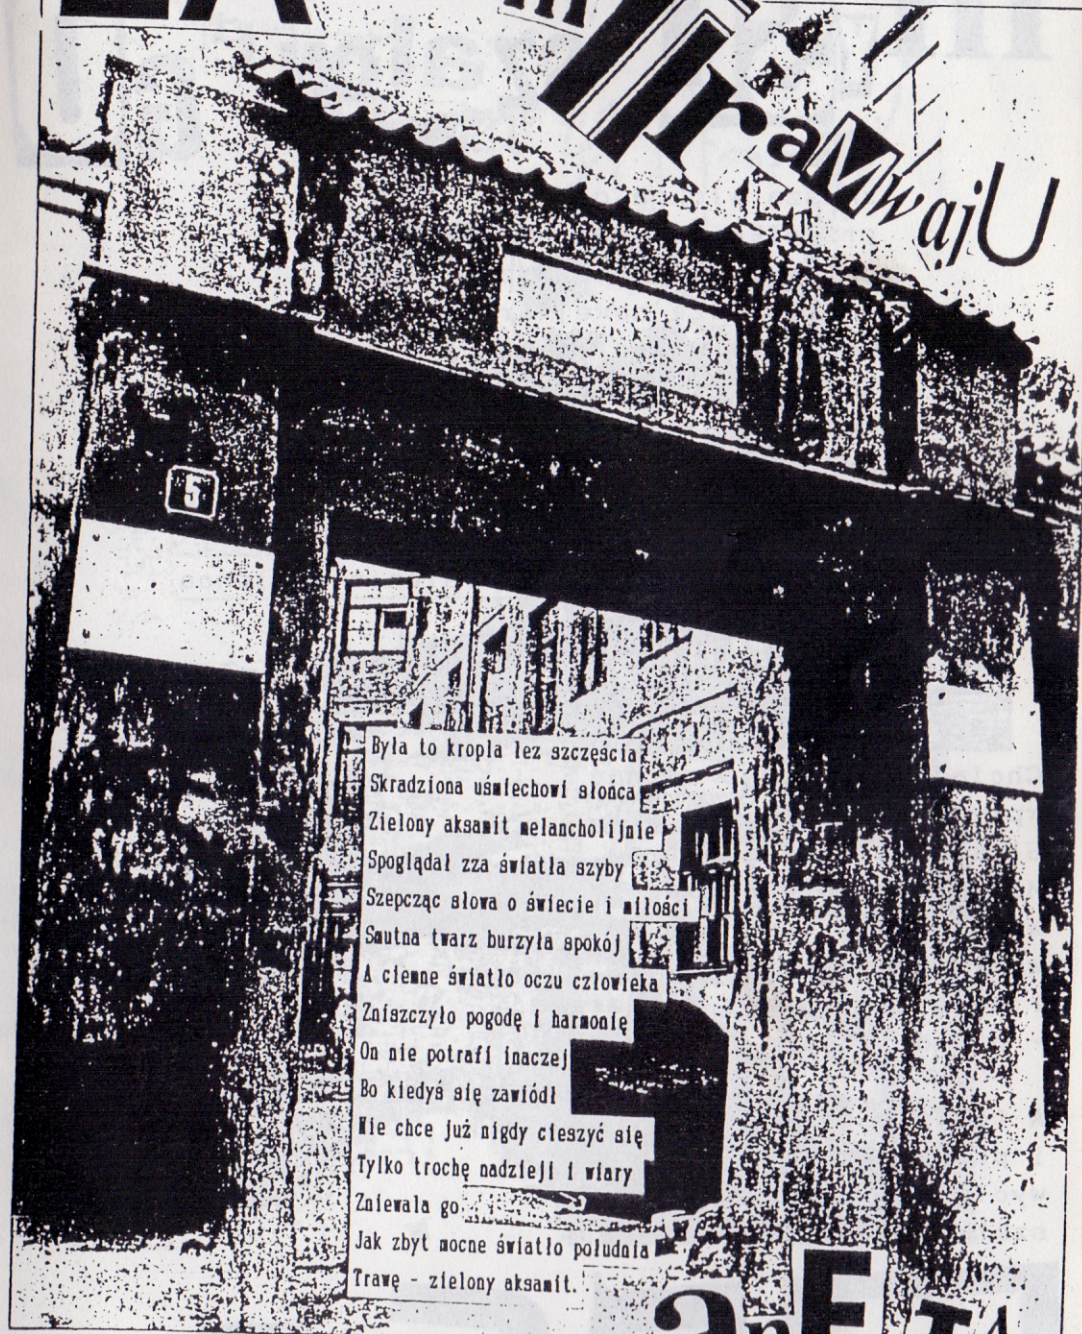 TraMwajU
5
Była to kropla łez szczęścia
Skradziona uśmiechowi słońca
Zielony aksamit melancholijnie
Spoglądał zza światła szyby
Szepcząc słowa o świecie i miłości
Smutna twarz burzyła spokój
A ciemne światło oczu człowieka
Zniszczyło pogodę i harmonię
On nie potrafi inaczej
Bo kiedyś się zawiódł
Nie chce już nigdy cieszyć się
Tylko trochę nadzieji i wiary
Zniewala go
Jak zbyt mocne światło południa
Trawę - zielony aksamit.
anETA